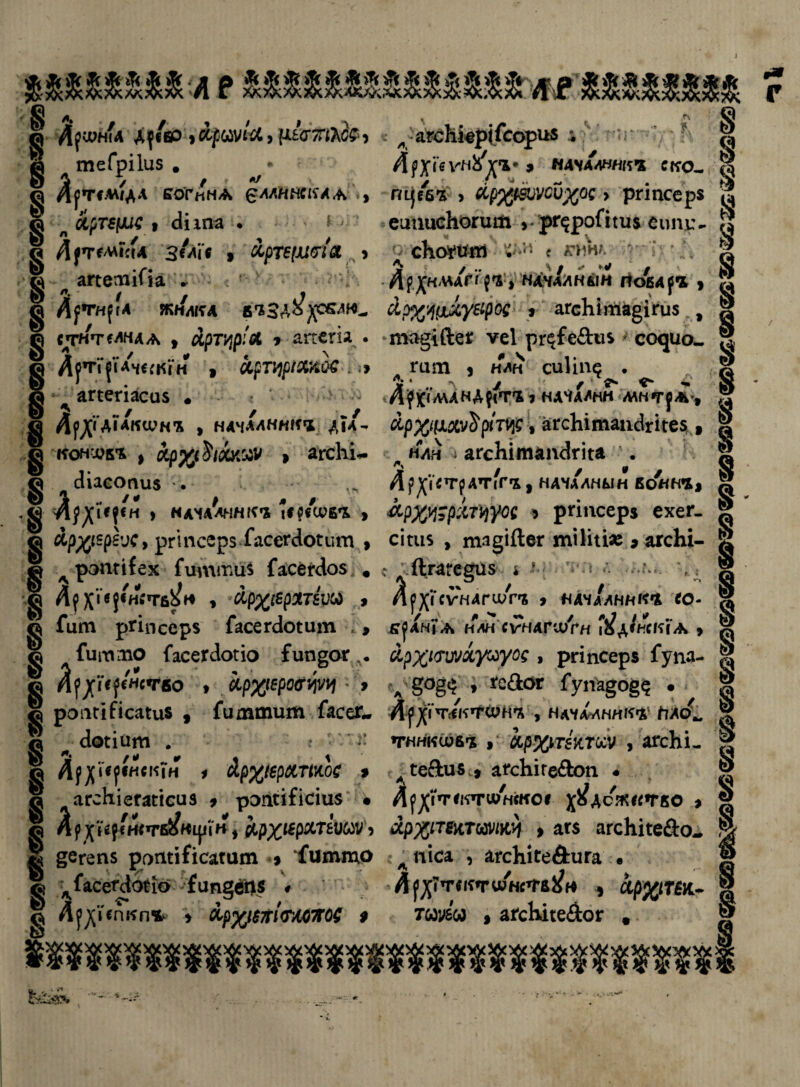 АР АР
Арѡнїа древо, ἀρωνία, μέσπιλος,
mespilus.
Артемїда богинѧ еллинскаѧ,
ἄρτεμις, diana.
Артемїсїа зелїе, ἀρτεμισία,
artemisia.
Артирїа жилка въздꙋховлю-
ститeлнаѧ, ἀρτηρία, arteria.
Артирїаческїй, ἀρτηριακός,
arteriacus.
Архїдїаконъ, началникъ дїа-
коновъ, ἀρχιδιάκων, archi-
diaconus.
Архїерей, началникъ їереѡвъ,
ἀρχιερεύς, princeps sacerdotum,
pontifex summus sacerdos.
Архїерействꙋю, ἀρχιερατεύω,
sum princeps sacerdotum,
summo sacerdotio fungor.
Архїерейство, ἀρχιεροσήνη,
pontificatus, summum sacer-
dotium.
Архїерейскїй, ἀρχιερατικός,
archieraticus, pontificius.
Архїерействꙋющїй, ἀρχιερατεύων,
gerens pontificatum, summo
sacerdotio fungens.
Архїепкпъ, ἀρχιεπίσκοπος,
archiepiscopus.
Архїеѵнꙋхъ, началникъ ско-
пцевъ, ἀρχιευνοῦχος, princeps
eunuchorum, prępositus eunu-
chorum.
Архимагїръ, началный поваръ,
ἀρχιμάγειρος, archimagirus,
magister vel pręfectus coquo-
rum, или culinę.
Архїмандрїтъ, началный мнтрѧ,
ἀρχιμανδρίτης, archimandrites,
или archimandrita.
Архїстратїгъ, началный воинъ,
ἀρχιστράτηγος, princeps exer-
citus, magister militiæ, archi-
strategus.
Архїсѵнагѡгъ, началникъ со-
бранїѧ или сѵнагѡги їꙋдейскїѧ,
ἀρχισυνάγωγος, princeps syna-
gogę, rector synagogę.
Архїтектѡнъ, началникъ пло-
тникѡвъ, ἀρχιτέκτων, archi-
tectus, architecton.
Архїтектѡнское хꙋдожество,
ἀρχιτεκτωνική, ars architecto-
nica, architectura.
Архїтектѡнствꙋю, ἀρχιτεκ-
τωνέω, architector.